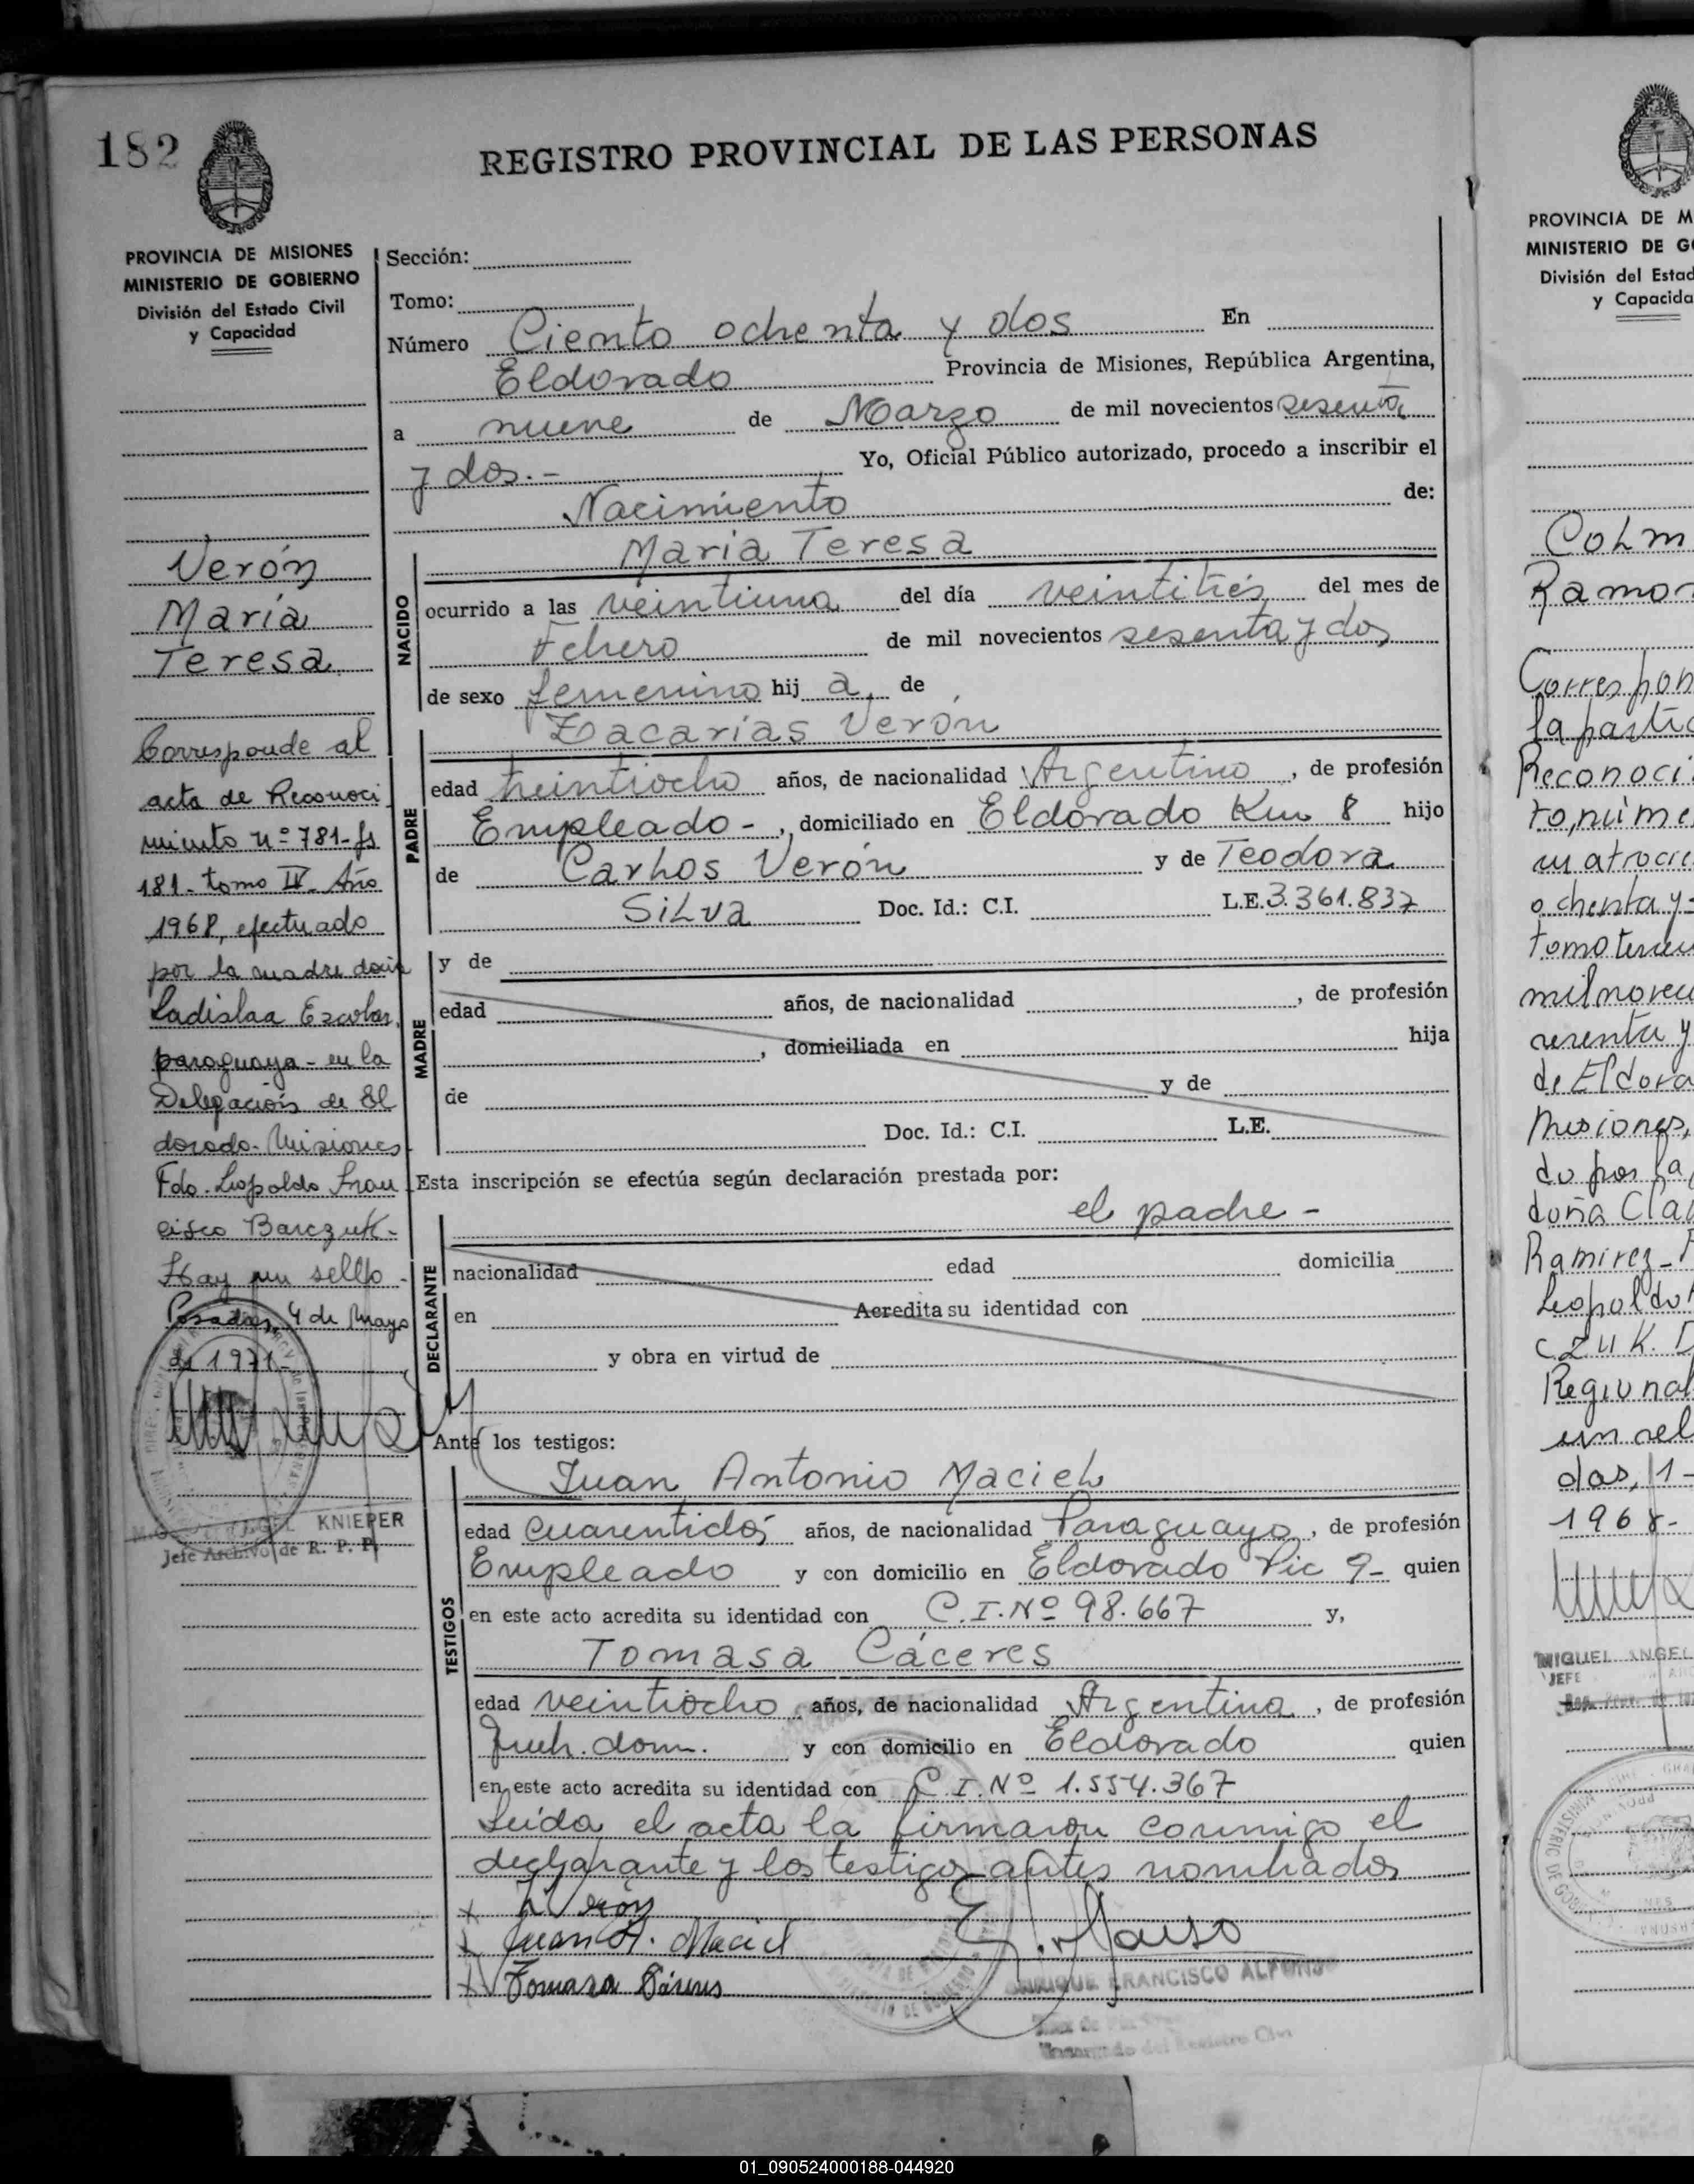 182
REGISTRO PROVINCIAL DE LAS PERSONAS
PROVINCIA DE MISIONES
MINISTERIO DE GOBIERNO
División del Estado Civil
y Capacidad
Verón
María
Teresa
Corresponde al
acta de Reconoci
miento nº 781-fs
181- tomo IV- Año
1968, efectuado
por la madre doña
Ladislaa Escobar,
paraguaya - en la
Delegación de El
dorado- Misiones
Fdo. Leopoldo Fran
cisco Barczuk-
Hay un sello -
Posadas, 4 de Mayo
de 1971-
KNIEPER
Jefe Archivo de R. P. P.
Sección:
Tomo:
Número Ciento ochenta y dos En
Eldorado Provincia de Misiones, República Argentina,
a nueve de Marzo de mil novecientos sesenta
y dos.- Yo, Oficial Público autorizado, procedo a inscribir el
Nacimiento de:
NACIDO
Maria Teresa
ocurrido a las veintiuna del día veintitrés del mes de
Febrero de mil novecientos sesenta y dos
de sexo femenino hij a, de
PADRE
Zacarías Verón
edad treintiocho años, de nacionalidad Argentino, de profesión
Empleado-, domiciliado en Eldorado Km 8 hijo
de Carlos Verón y de Teodora
Silva Doc. Id.: C.I. L.E. 3.361.837
MADRE
y de
edad años, de nacionalidad , de profesión
, domiciliada en hija
de y de
Doc. Id.: C.I. L.E.
Esta inscripción se efectúa según declaración prestada por:
DECLARANTE
el padre -
nacionalidad edad domicilia
en Acredita su identidad con
y obra en virtud de
Ante los testigos:
TESTIGOS
Juan Antonio Maciel
edad cuarentidós años, de nacionalidad Paraguayo, de profesión
Empleado y con domicilio en Eldorado Pic 9- quien
en este acto acredita su identidad con C.I. Nº 98.667 y,
Tomasa Cáceres
edad veintiocho años, de nacionalidad Argentina, de profesión
dom. y con domicilio en Eldorado quien
en este acto acredita su identidad con C.I. Nº 1.554.367
Leída el acta la firmaron conmigo el
declarante y los testigos antes nombrados
Z Verón
Juan A. Maciel
Tomasa Cáceres
ENRIQUE FRANCISCO ALFONSO
PROVINCIA DE M
MINISTERIO DE G
División del Estad
y Capacida
Colm
Ramon
Correspon
la parti
Reconoci
to, núme
cuatrocie
ochenta y
tomo tercer
mil novec
sesenta y
de Eldora
Misiones,
do por la
doña Cla
Ramirez-
Leopoldo
czuk. D
Regional
un sel
das, 1-
1968-
MIGUEL ANGEL
JEFE
01_090524000188-044920